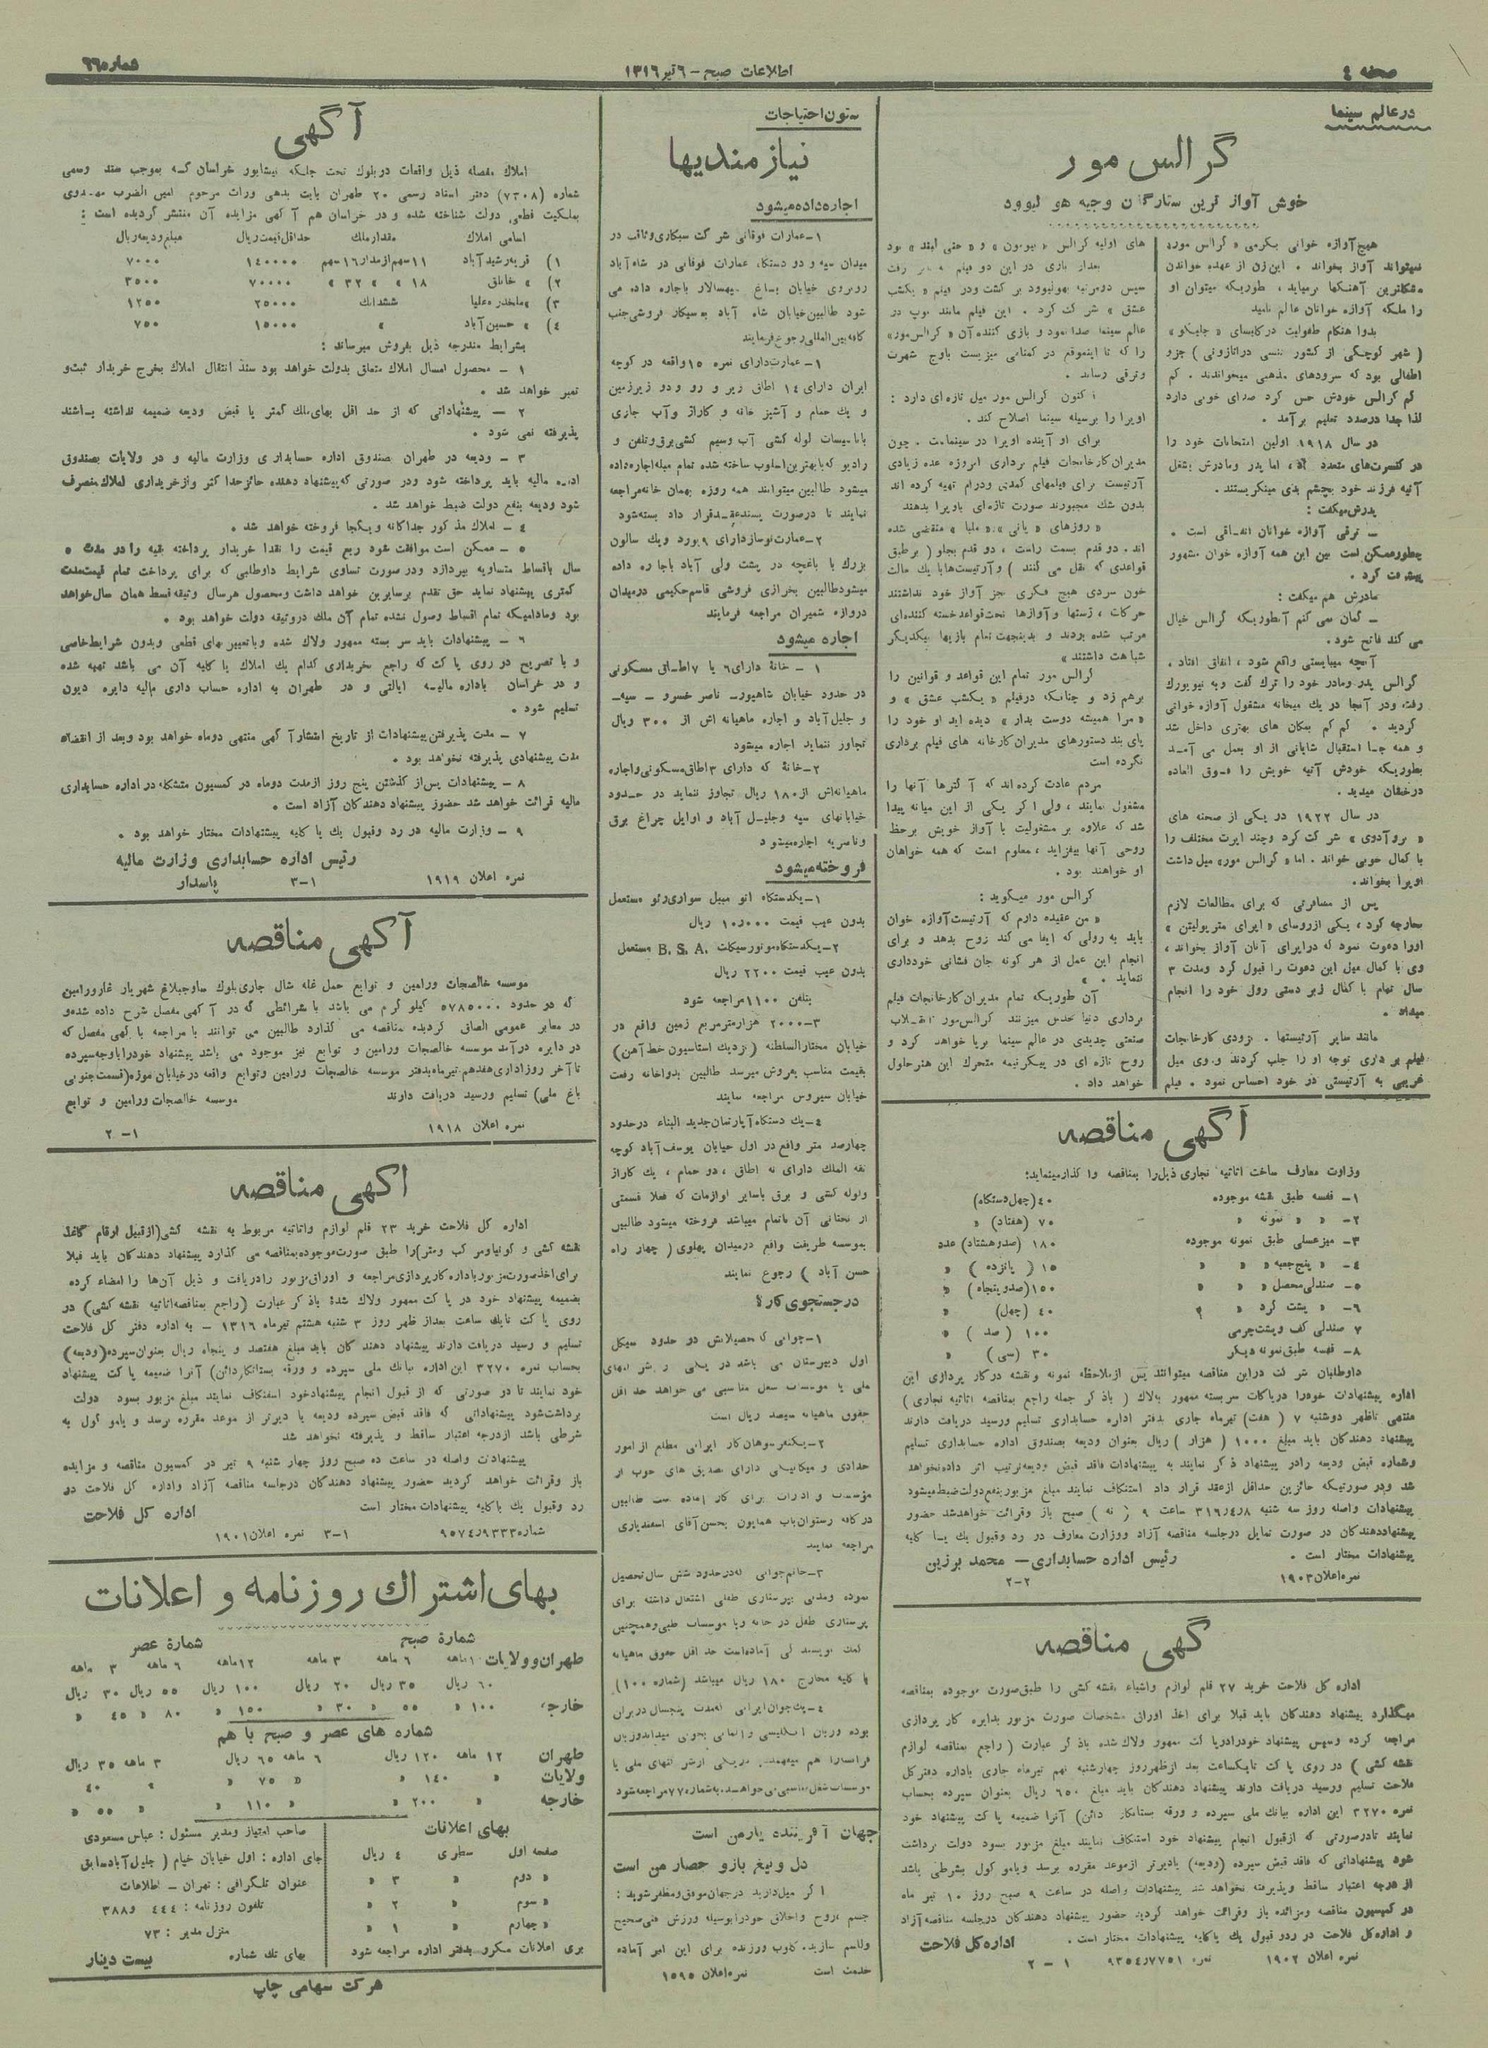 صفحه ٤
اطلاعات صبح – ٦ تیر ١٣١٦
شماره ٦٦٠
در عالم سینما
گرالس مور
خوش آواز ترین ستارگان وجیه هو لیوود
هیچ آوازه خوانی بگرمی « گرالس مور»
نمیتواند آواز بخواند . این زن از عهده خواندن
مشکلترین آهنگها برمیاید ، طوریکه میتوان او
را ملکه آوازه خوانان عالم نامید
بدوا هنگام طفولیت در کلیسای « جلیکو »
( شهر کوچکی از کشور تنسی در اتازونی ) جزو
اطفالی بود که سرودهای مذهبی میخواندند . کم
کم گرالس خودش حس کرد صدای خوبی دارد
لذا جدا درصدد تعلیم برآمد .
در سال ١٩١٨ اولین امتحانات خود را
در کنسرت‌های متعدد داد، اما پدر و مادرش بشغل
آتیه فرزند خود بچشم بدی مینگریستند .
پدرش میگفت :
– ترقی آوازه خوانان اتفاقی است .
چطور ممکن است بین این همه آوازه خوان مشهور
پیشرفت کرد .
مادرش هم میگفت :
– گمان نمی کنم آنطوریکه گرالس خیال
می کند فاتح شود .
آنچه میبایستی واقع شود ، اتفاق افتاد .
گرالس پدر ومادر خود را ترک گفت و به نیویورک
رفت ودر آنجا در یک میخانه مشغول آوازه خوانی
گردید . کم کم بمکان های بهتری داخل شد
و همه جا استقبال شایانی از او بعمل می آمد
بطوریکه خودش آتیه خویش را فوق العاده
درخشان میدید .
در سال ١٩٢٢ در یکی از صحنه های
« بروآدوی » شرکت کرد وچند اپرت مختلف را
با کمال خوبی خواند . اما « گرالس مور» میل داشت
اوپرا بخواند.
پس از مسافرتی که برای مطالعات لازم
بخارجه کرد ، یکی از روسای « اپرای متروپولیتن »
اورا دعوت نمود که در اپرای آنان آواز بخواند ،
وی با کمال میل این دعوت را قبول کرد ومدت ٣
سال تمام با کمال زبر دستی رول خود را انجام
میداد .
مانند سایر آرتیستها ، بزودی کارخانجات
فیلم برداری توجه او را جلب کردند و وی میل
غریبی به آرتیستی در خود احساس نمود . فیلم
های اولیه گرالس « نیومون » و « جنی لیند » بود
بعداز بازی در این دو فیلم به سفر رفت
سپس دومرتبه بهولیوود برگشت ودر فیلم « یکشب
عشق » شرکت کرد . این فیلم مانند توپ در
عالم سینما صدا نمود و بازی کننده آن « گرالس مور»
را که تا اینموقع در گمنامی میزیست باوج شهرت
وترقی رساند .
اکنون گرالس مور میل تازه ای دارد :
اوپرا را بوسیله سینما اصلاح کند .
برای او آینده اوپرا در سینماست . چون
مدیران کارخانجات فیلم برداری امروزه عده زیادی
آرتیست برای فیلمهای کمدی ودرام تهیه کرده اند
بدون شک مجبورند صورت تازه ای باوپرا بدهند
اند . دو قدم بسمت راست ، دو قدم بجلو ( برطبق
قواعدی که نقل می کنند ) و آرتیست‌ها با یک حالت
خون سردی هیچ فکری جز آواز خود نداشتند
حرکات ، ژستها و آوازها تحت قواعد خسته کننده‌ای
مرتب شده بودند و بدینجهت تمام بازیها بیکدیگر
شباهت داشتند »
گرالس مور تمام این قواعد و قوانین را
برهم زد و چنانکه در فیلم « یکشب عشق » و
« مرا همیشه دوست بدار » دیده اید او خود را
پای بند دستورهای مدیران کارخانه های فیلم برداری
نکرده است
مردم عادت کرده‌اند که آکترها آنها را
مشغول نمایند ، ولی اگر یکی از این میانه پیدا
شد که علاوه بر مشغولیت با آواز خویش برحظ
روحی آنها بیفزاید ، معلوم است که همه خواهان
او خواهند بود .
گرالس مور میگوید :
« من عقیده دارم که آرتیست آوازه خوان
باید به رولی که ایفا می کند روح بدهد و برای
انجام این عمل از هر گونه جان فشانی خودداری
ننماید . »
آن طوریکه تمام مدیران کارخانجات فیلم
برداری دنیا حدس میزنند گرالس مور انقلاب
صنعتی جدیدی در عالم سینما برپا خواهد کرد و
روح تازه ای در پیکر نیمه متحرک این هنر حلول
خواهد داد .
آگهی مناقصه
وزارت معارف ساخت اثاثیه نجاری ذیل را بمناقصه واگذار مینماید:
١– قفسه طبق نقشه موجوده ٤٠ (چهل دستگاه)
٢– « « نمونه « ٧٠ (هفتاد) «
٣– میز عسلی طبق نمونه موجوده ١٨٠ (صد و هشتاد) عدد
٤– « پنج جعبه « « ١٥ ( پانزده ) «
٥– صندلی محصل « « ١٥٠ (صد و پنجاه) «
٦– « پشت گرد « ٤٠ (چهل) «
٧ صندلی کف و پشت چرمی ١٠٠ ( صد ) «
٨– قفسه طبق نمونه دیگر ٣٠ (سی) «
داوطلبان شرکت در این مناقصه میتوانند پس از ملاحظه نمونه و نقشه در کار پردازی این
اداره پیشنهادات خود را در پاکات سربسته ممهور بلاک ( با ذکر جمله راجع بمناقصه اثاثیه نجاری )
منتهی تا ظهر دوشنبه ٧ ( هفت) تیرماه جاری بدفتر اداره حسابداری تسلیم و رسید دریافت دارند
پیشنهاد دهندگان باید مبلغ ١٠٠٠ ( هزار ) ریال بعنوان ودیعه بصندوق اداره حسابداری تسلیم
وشماره قبض ودیعه را در پیشنهاد ذکر نمایند به پیشنهادات فاقد قبض ودیعه ترتیب اثر داده نخواهد
شد ودر صورتیکه حائزین حداقل از عقد قرار داد استنکاف نمایند مبلغ مزبور بنفع دولت ضبط میشود
پیشنهادات واصله روز سه شنبه ٣١٦٫٤٫٨ ساعت ٩ ( نه ) صبح باز وقرائت خواهد شد حضور
پیشنهاد دهندگان در صورت تمایل در جلسه مناقصه آزاد ووزارت معارف در رد وقبول یک یا کلیه
پیشنهادات مختار است .
رئیس اداره حسابداری – محمد برزین
نمره اعلان ١٩٠٣
٢–٢
گهی مناقصه
اداره کل فلاحت خرید ٢٧ قلم لوازم واشیاء نقشه کشی را طبق صورت موجوده بمناقصه
میگذارد پیشنهاد دهندگان باید قبلا برای اخذ اوراق مشخصات صورت مزبور بدایره کار پردازی
مراجعه کرده وسپس پیشنهاد خود را در پاکت ممهور ولاک شده با ذکر عبارت ( راجع بمناقصه لوازم
نقشه کشی ) در روی پاکت تا یکساعت بعد از ظهر روز چهارشنبه نهم تیرماه جاری باداره دفتر کل
فلاحت تسلیم ورسید دریافت دارند پیشنهاد دهندگان باید مبلغ ٦٥٠ ریال بعنوان سپرده بحساب
نمره ٣٢٧٠ این اداره ببانک ملی سپرده و ورقه بستانکار دائن) آنرا ضمیمه پاکت پیشنهاد خود
نمایند تا در صورتی که از قبول انجام پیشنهاد خود استنکاف نمایند مبلغ مزبور بسود دولت برداشت
شود پیشنهاداتی که فاقد قبض سپرده (ودیعه) یا دیرتر از موعد مقرره برسد ویا موکول بشرطی باشد
از درجه اعتبار ساقط وپذیرفته نخواهد شد پیشنهادات واصله در ساعت ٩ صبح روز ١٠ تیر ماه
در کمیسیون مناقصه ومزایده باز وقرائت خواهد گردید حضور پیشنهاد دهندگان در جلسه مناقصه آزاد
و اداره کل فلاحت در رد و قبول یک یا کلیه پیشنهادات مختار است .
اداره کل فلاحت
نمره اعلان ١٩٠٢ نمره ٩٣٥٤٫٧٧٥١ ١ – ٢
ستون احتیاجات
نیازمندیها
اجاره داده میشود
١– عمارات فوقانی شرکت سیگاری وثاقب در
میدان سپه و دو دستگاه عمارات فوقانی در شاه آباد
روبروی خیابان بباغ سپهسالار باجاره داده می
شود طالبین خیابان شاه آباد به سیگار فروشی جنب
کافه بین المللی رجوع فرمایند
١– عمارت دارای نمره ١٥ واقعه در کوچه
ایران دارای ١٤ اطاق زیر و رو ودو زیرزمین
و یک حمام و آشپز خانه و گاراژ وآب جاری
با تاسیسات لوله کشی آب و سیم کشی برق و تلفن و
رادیو که با بهترین اسلوب ساخته شده تمام مبله اجاره داده
میشود طالبین میتوانند همه روزه بهمان خانه مراجعه
نمایند تا در صورت پسند عقد قرار داد بسته شود
٢– عمارت نوساز دارای ٩ بورد ویک سالون
بزرگ با باغچه در پشت ولی آباد باجاره داده
میشود طالبین بخرازی فروشی قاسم حکیمی در میدان
دروازه شمیران مراجعه فرمایند
اجاره میشود
١ – خانهٔ دارای ٦ یا ٧ اطاق مسکونی
در حدود خیابان شاهپور – ناصر خسرو – سپه
و جلیل آباد و اجاره ماهیانه اش از ٣٠٠ ریال
تجاوز ننماید اجاره میشود
٢– خانهٔ که دارای ٣ اطاق مسکونی واجاره
ماهیانه‌اش از ١٨٠ ریال تجاوز ننماید در حدود
خیابانهای سپه وجلیل آباد و اوایل چراغ برق
وناصریه اجاره میشود
فروخته میشود
١– یکدستگاه اتو مبیل سواری رئو مستعمل
بدون عیب قیمت ١٠٫٠٠٠ ریال
٢– یکدستگاه موتور سیکلت B. S. A. مستعمل
بدون عیب قیمت ٢٢٠٠ ریال
بتلفن ١١٠٠ مراجعه شود
٣– ٢٠٠٠ هزار متر مربع زمین واقع در
خیابان مختارالسلطنه (نزدیک استاسیون خط آهن)
بقیمت مناسب بفروش میرسد طالبین بدواخانه رفعت
خیابان سیروس مراجعه نمایند
٤– یک دستگاه آپارتمان جدید البناء در حدود
چهارصد متر واقع در اول خیابان یوسف آباد کوچه
ثقه الملک دارای نه اطاق ، دو حمام ، یک گاراژ
ولوله کشی و برق باسایر لوازمات که فعلا قسمتی
از تحتانی آن ناتمام میباشد فروخته میشود طالبین
بموسسه طریقت واقع در میدان پهلوی ( چهار راه
حسن آباد ) رجوع نمایند
در جستجوی کار
١– جوانی که تحصیلاتش در حدود سیکل
اول دبیرستان می باشد در یکی از شرکتهای
ملی یا موسسات شغل مناسبی می خواهد حد اقل
حقوق ماهیانه سیصد ریال است
٢– یکنفر سوهان کار ایرانی مطلع از امور
حدادی و میکانیکی دارای تصدیق های خوب از
مؤسسات و ادارات برای کار آماده است طالبین
در کافه رستوران باب همایون بحسن آقای اسفندیاری
مراجعه نمایند
٣– خانم جوانی که در حدود شش سال تحصیل
نموده ومدتی بپرستاری طفل اشتغال داشته برای
پرستاری طفل در خانه ویا موسسات طبی وهمچنین
با کلیه مخارج ١٨٠ ریال میباشد (شماره ١٠٠)
جهان آفریننده یار من است
دل و تیغ بازو حصار من است
اگر میل دارید در جهان موفق و مظفر شوید :
جسم و روح واخلاق خود را بوسیله ورزش فنی صحیح
وسالم سازید. کلوب ورزنده برای این امر آماده
خدمت است
نمره اعلان ١٥٩٥
آگهی
املاک مفصله ذیل واقعات در بلوک تحت جلگه نیشابور خراسان که بموجب سند رسمی
شماره (٧٣٠٨) دفتر اسناد رسمی ٢٠ طهران بابت بدهی وراث مرحوم امین الضرب مهدوی
بملکیت قطعی دولت شناخته شده و در خراسان هم آگهی مزایده آن منتشر گردیده است :
اسامی املاک مقدار ملک حداقل قیمت ریال مبلغ ودیعه ریال
١) قریه رشید آباد ١١ سهم از مدار ١٦ سهم ١٤٠٠٠٠ ٧٠٠٠
٢) « خانلق ١٨ « « ٣٢ « ٧٠٠٠٠ ٣٥٠٠
٣) « ملخدره علیا ششدانگ ٢٥٠٠٠ ١٢٥٠
٤) « حسین آباد « ١٥٠٠٠ ٧٥٠
بشرایط مندرجه ذیل بفروش میرساند :
١ – محصول امسال املاک متعلق بدولت خواهد بود سند انتقال املاک بخرج خریدار ثبت و
تمبر خواهد شد .
٢ – پیشنهاداتی که از حد اقل بهای ملک کمتر یا قبض ودیعه ضمیمه نداشته باشند
پذیرفته نمی شود .
٣ – ودیعه در طهران بصندوق اداره حسابداری وزارت مالیه و در ولایات بصندوق
اداره مالیه باید پرداخته شود ودر صورتی که پیشنهاد دهنده حائز حد اکثر واز خریداری املاک منصرف
شود ودیعه بنفع دولت ضبط خواهد شد .
٤ – املاک مذکور جداگانه و یکجا فروخته خواهد شد .
٥ – ممکن است موافقت شود ربع قیمت را نقدا خریدار پرداخته بقیه را در مدت ٥
سال باقساط متساویه بپردازد ودر صورت تساوی شرایط داوطلبی که برای پرداخت تمام قیمت مدت
کمتری پیشنهاد نماید حق تقدم برسایرین خواهد داشت ومحصول هر سال وثیقه قسط همان سال خواهد
بود ومادامیکه تمام اقساط وصول نشده تمام آن ملک در وثیقه دولت خواهد بود .
٦ – پیشنهادات باید سر بسته ممهور ولاک شده وبا تعیین بهای قطعی وبدون شرایط خاصی
و با تصریح در روی پاکت که راجع بخریداری کدام یک املاک یا کلیه آن می باشد تهیه شده
و در خراسان باداره مالیه ایالتی و در طهران به اداره حساب داری مالیه دایره دیون
تسلیم شود .
٧ – مدت پذیرفتن پیشنهادات از تاریخ انتشار آگهی منتهی دو ماه خواهد بود وبعد از انقضاء
مدت پیشنهادی پذیرفته نخواهد بود .
٨ – پیشنهادات پس از گذشتن پنج روز از مدت دو ماه در کمسیون متشکله در اداره حسابداری
مالیه قرائت خواهد شد حضور پیشنهاد دهندگان آزاد است .
٩ – وزارت مالیه در رد وقبول یک یا کلیه پیشنهادات مختار خواهد بود .
رئیس اداره حسابداری وزارت مالیه
نمره اعلان ١٩١٩ ١–٣ پاسدار
آگهی مناقصه
موسسه خالصجات ورامین و توابع حمل غله سال جاری بلوک ساوجبلاغ شهریار غار ورامین
که در حدود ٥٧٨٥٠٠٠ کیلو گرم می باشد با شرائطی که در آگهی مفصل شرح داده شده و
در معابر عمومی الصاق گردیده مناقصه می گذارد طالبین می توانند با مراجعه با گهی مفصل که
در دایره درآمد موسسه خالصجات ورامین و توابع نیز موجود می باشد پیشنهاد خود را با وجه سپرده
تا آخر روز اداری هفدهم تیرماه بدفتر موسسه خالصجات ورامین وتوابع واقعه در خیابان موزه (قسمت جنوبی
باغ ملی) تسلیم ورسید دریافت دارند
موسسه خالصجات ورامین و توابع
نمره اعلان ١٩١٨ ١– ٢
آگهی مناقصه
اداره کل فلاحت خرید ٢٣ قلم لوازم واثاثیه مربوط به نقشه کشی (از قبیل اوقام کاغذ
نقشه کشی و گونیا و مرکب ومتر) را طبق صورت موجوده بمناقصه می گذارد پیشنهاد دهندگان باید قبلا
برای اخذ صورت مزبور باداره کار پردازی مراجعه و اوراق مزبور را دریافت و ذیل آن‌ها را امضاء کرده
بضمیمه پیشنهاد خود در پاکت ممهور ولاک شدهٔ باذکر عبارت (راجع بمناقصه اثاثیه نقشه کشی) در
روی پاکت تا یک ساعت بعداز ظهر روز ٣ شنبه هشتم تیرماه ١٣١٦ – به اداره دفتر کل فلاحت
تسلیم و رسید دریافت دارند پیشنهاد دهندگان باید مبلغ هفتصد و پنجاه ریال بعنوان سپرده (ودیعه)
بحساب نمره ٣٢٧٠ این اداره ببانک ملی سپرده و ورقه بستانکار دائن) آنرا ضمیمه پاکت پیشنهاد
خود نمایند تا در صورتی که از قبول انجام پیشنهاد خود استنکاف نمایند مبلغ مزبور بسود دولت
برداشت شود پیشنهاداتی که فاقد قبض سپرده ودیعه یا دیرتر از موعد مقرره برسد و یا مو کول به
شرطی باشد از درجه اعتبار ساقط و پذیرفته نخواهد شد
پیشنهادات واصله در ساعت ده صبح روز چهار شنبه ٩ تیر در کمسیون مناقصه و مزایده
باز وقرائت خواهد گردید حضور پیشنهاد دهندگان در جلسه مناقصه آزاد واداره کل فلاحت در
رد وقبول یک یا کلیه پیشنهادات مختار است
اداره کل فلاحت
شماره ٩٥٧٤٫٩٣٣٣ ١–٣ نمره اعلان ١٩٠١
بهای اشتراک روزنامه و اعلانات
شمارهٔ صبح شمارهٔ عصر
طهران وولایات ١٠ ماهه ٦ ماهه ٣ ماهه ١٢ ماهه ٦ ماهه ٣ ماهه
٦٠ ریال ٣٥ ریال ٢٠ ریال ١٠٠ ریال ٥٥ ریال ٣٠ ریال
خارجه ١٠٠ « ٥٥ « ٣٠ « ١٥٠ « ٨٠ « ٤٥ «
شماره های عصر و صبح با هم
طهران ١٢ ماهه ١٢٠ ریال ٦ ماهه ٦٥ ریال ٣ ماهه ٣٥ ریال
ولایات « ١٤٠ « « ٧٥ « « ٤٠
خارجه « ٢٠٠ « « ١١٠ « « ٥٥ «
بهای اعلانات
صفحه اول سطری ٤ ریال
« دوم « ٣ «
« سوم « ٢ «
« چهارم « ١ «
برای اعلانات مکرر بدفتر اداره مراجعه شود
صاحب امتیاز ومدیر مسئول : عباس مسعودی
جای اداره : اول خیابان خیام ( جلیل آباد سابق
عنوان تلگرافی : تهران – اطلاعات
تلفون روزنامه : ٤٤٤ و ٣٨٨
منزل مدیر : ٧٣
بهای تک شماره بیست دینار
شرکت سهامی چاپ